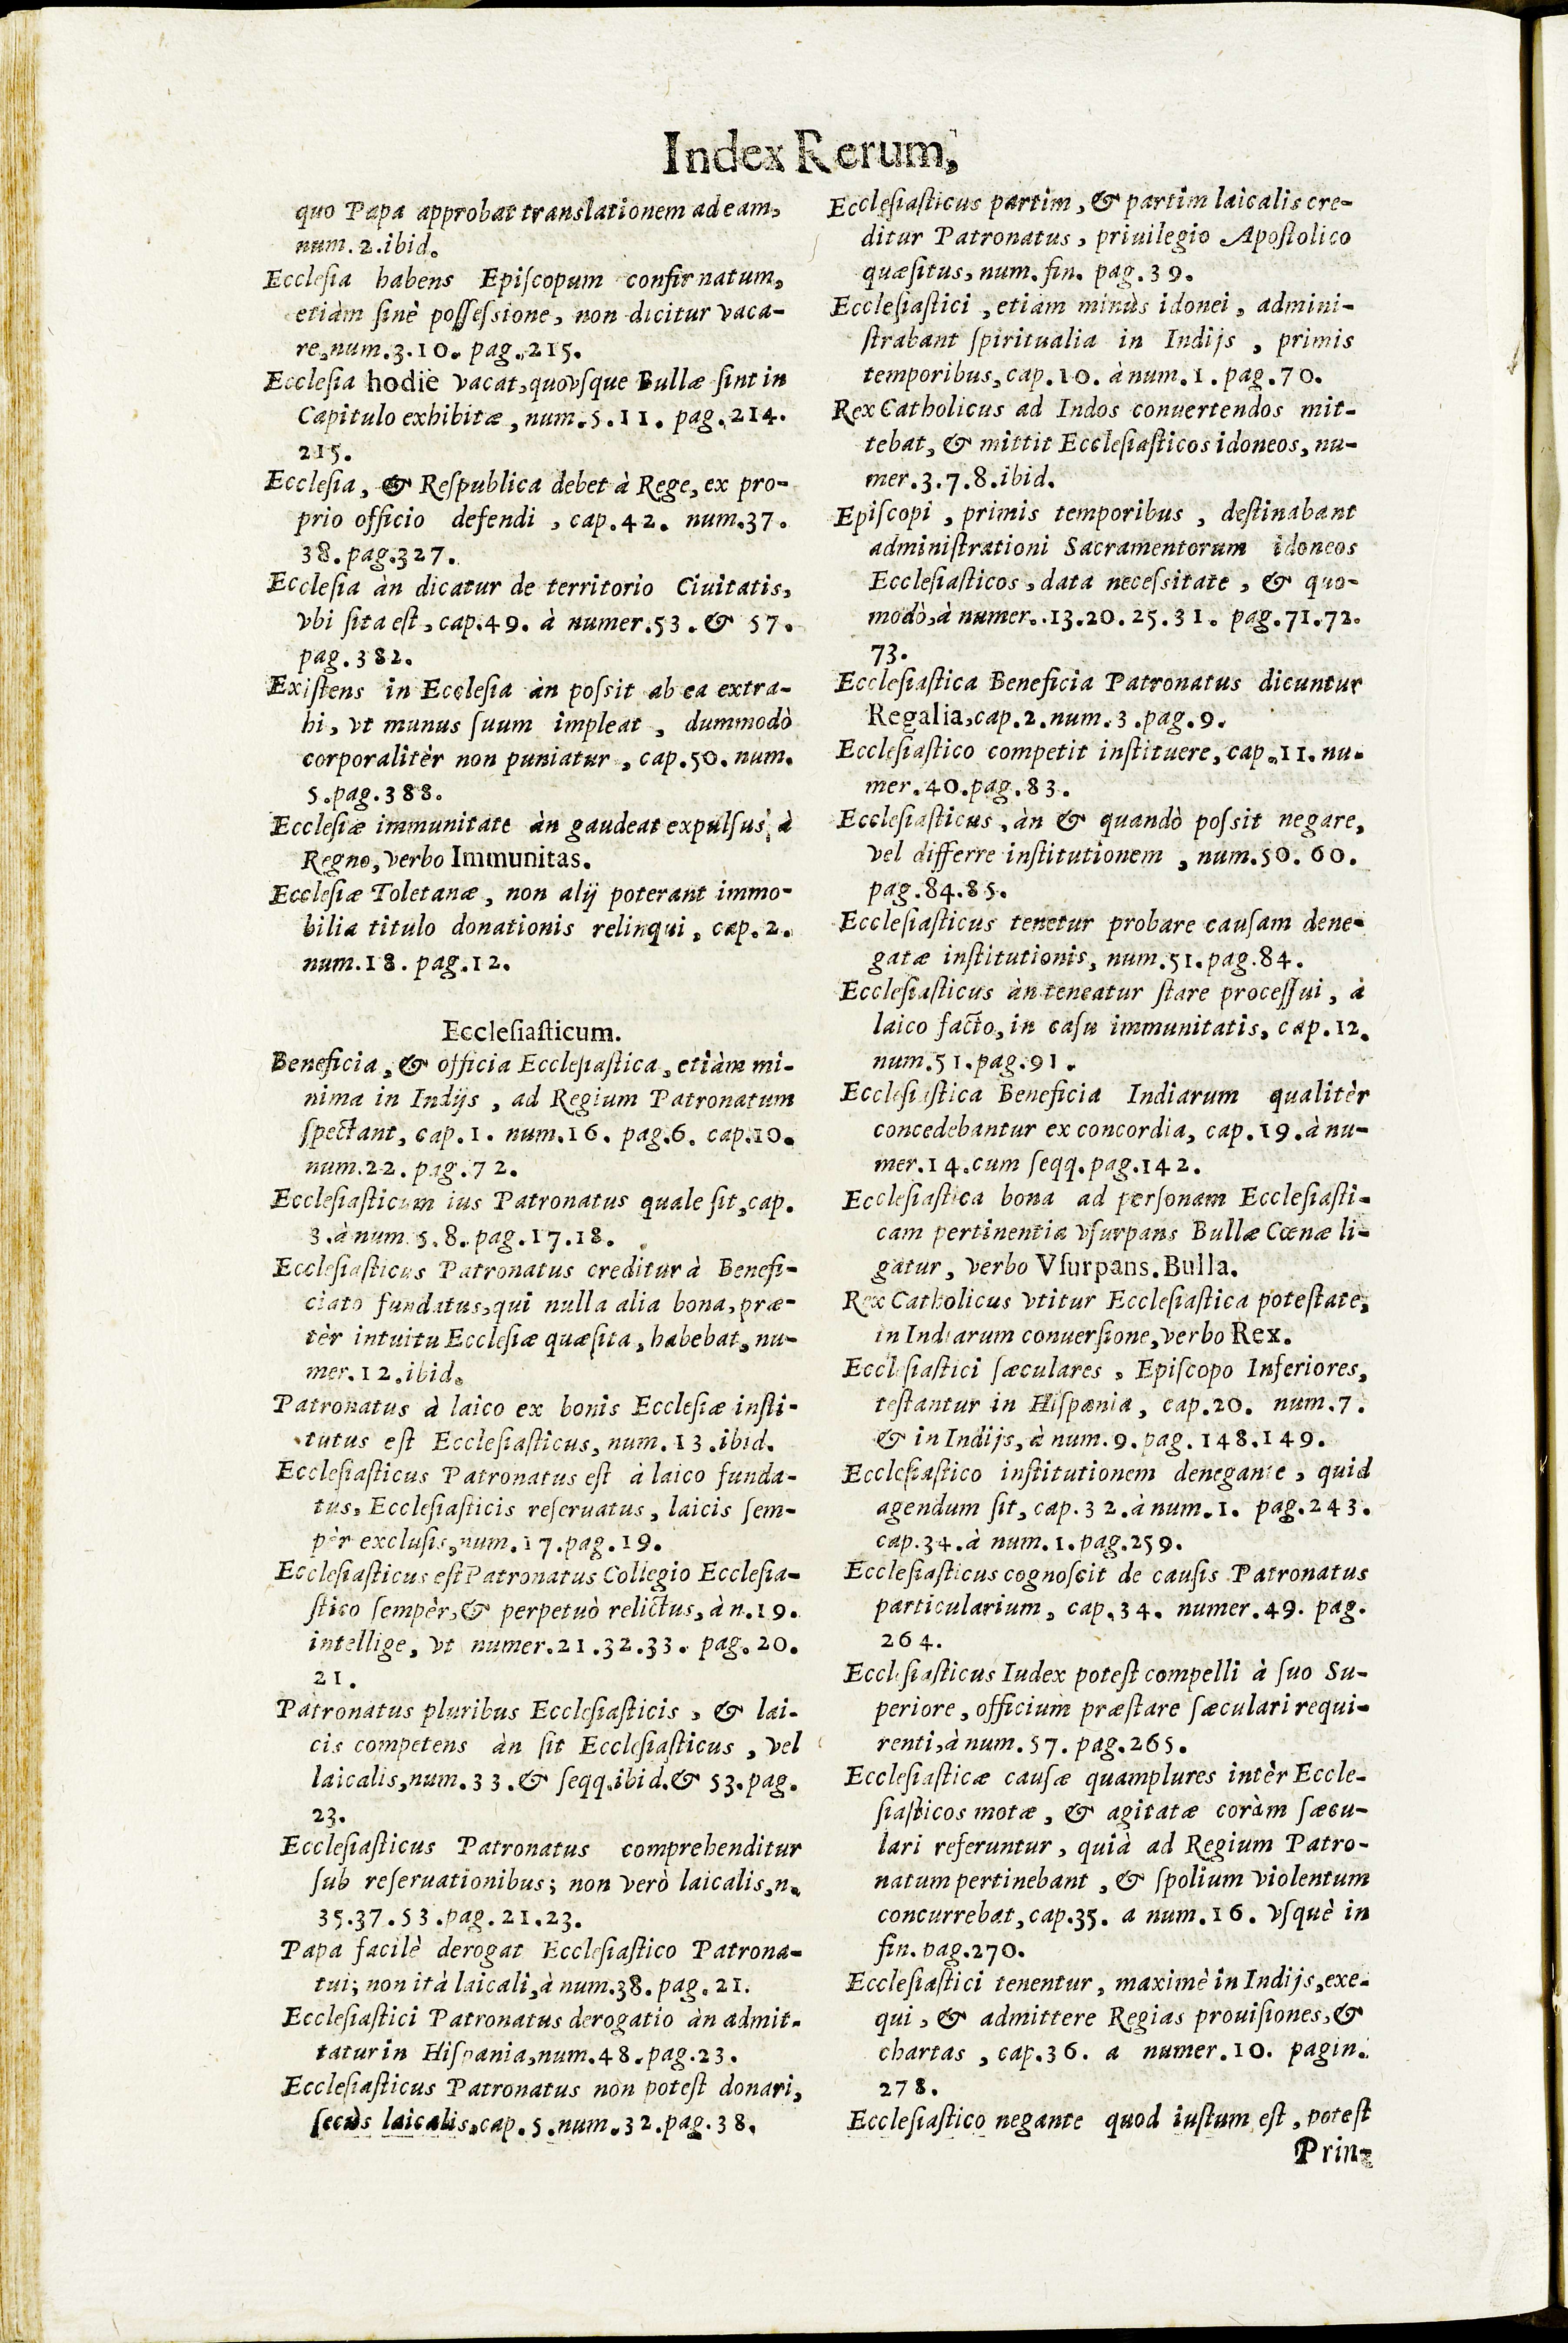 Index Rerum,
quo Papa approbat translationem ad eam,
num. 2. ibid.
Ecclesia habens Episcopum confirmatum,
etiàm sinè possessione, non dicitur vaca-
re, num. 3. 10. pag. 215.
Ecclesia hodie vacat, quovsque Bullæ sint in
Capitulo exhibitæ, num. 5. 11. pag. 214.
215.
Ecclesia, & Respublica debet à Rege, ex pro-
prio officio defendi, cap. 42. num. 37.
38. pag. 327.
Ecclesia àn dicatur de territorio Ciuitatis,
vbi sita est, cap. 49. à numer. 53. & 57.
pag. 382.
Existens in Ecclesia àn possit ab ea extra-
hi, vt munus suum impleat, dummodò
corporalitèr non puniatur, cap. 50. num.
5. pag. 388.
Ecclesiæ immunitate àn gaudeat expulsus à
Regno, verbo Immunitas.
Ecclesiæ Toletanæ, non alij poterant immo-
bilia titulo donationis relinqui, cap. 2.
num. 18. pag. 12.
Ecclesiasticum.
Beneficia, & officia Ecclesiastica, etiàm mi-
nima in Indijs, ad Regium Patronatum
spectant, cap. 1. num. 16. pag. 6. cap. 10.
num. 22. pag. 72.
Ecclesiasticum ius Patronatus quale sit, cap.
3. à num. 5. 8. pag. 17. 18.
Ecclesiasticus Patronatus creditur à Benefi-
ciato fundatus, qui nulla alia bona, præ-
tèr intuitu Ecclesiæ quæsita, habebat, nu-
mer. 12. ibid.
Patronatus à laico ex bonis Ecclesiæ insti-
tutus est Ecclesiasticus, num. 13. ibid.
Ecclesiasticus Patronatus est à laico funda-
tus, Ecclesiasticis reseruatus, laicis sem-
pèr exclusis, num. 17. pag. 19.
Ecclesiasticus est Patronatus Collegio Ecclesia-
stico sempèr, & perpetuò relictus, à n. 19.
intellige, vt numer. 21. 32. 33. pag. 20.
21.
Patronatus pluribus Ecclesiasticis, & lai-
cis competens àn sit Ecclesiasticus, vel
laicalis, num. 33. & seqq. ibid. & 53. pag.
23.
Ecclesiasticus Patronatus comprehenditur
sub reseruationibus; non verò laicalis, n.
35. 37. 53. pag. 21. 23.
Papa facilè derogat Ecclesiastico Patrona-
tui; non ità laicali, à num. 38. pag. 21.
Ecclesiastici Patronatus derogatio àn admit-
tatur in Hispania, num. 48. pag. 23.
Ecclesiasticus Patronatus non potest donari,
secùs laicalis, cap. 5. num. 32. pag. 38.
Ecclesiasticus partim, & partim laicalis cre-
ditur Patronatus, priuilegio Apostolico
quæsitus, num. fin. pag. 39.
Ecclesiastici, etiàm minùs idonei, admini-
strabant spiritualia in Indijs, primis
temporibus, cap. 10. à num. 1. pag. 70.
Rex Catholicus ad Indos conuertendos mit-
tebat, & mittit Ecclesiasticos idoneos, nu-
mer. 3. 7. 8. ibid.
Episcopi, primis temporibus, destinabant
administrationi Sacramentorum idoneos
Ecclesiasticos, data necessitate, & quo-
modò, à numer. 13. 20. 25. 31. pag. 71. 72.
73.
Ecclesiastica Beneficia Patronatus dicuntur
Regalia, cap. 2. num. 3. pag. 9.
Ecclesiastico competit instituere, cap. 11. nu-
mer. 40. pag. 83.
Ecclesiasticus, àn & quandò possit negare,
vel differre institutionem, num. 50. 60.
pag. 84. 85.
Ecclesiasticus tenetur probare causam dene-
gatæ institutionis, num. 51. pag. 84.
Ecclesiasticus àn teneatur stare processui, à
laico facto, in casu immunitatis, cap. 12.
num. 51. pag. 91.
Ecclesiastica Beneficia Indiarum qualitèr
concedebantur ex concordia, cap. 19. à nu-
mer. 14. cum seqq. pag. 142.
Ecclesiastica bona ad personam Ecclesiasti-
cam pertinentia vsurpans Bullæ Cœnæ li-
gatur, verbo Vsurpans. Bulla.
Rex Catholicus vtitur Ecclesiastica potestate,
in Indiarum conuersione, verbo Rex.
Ecclesiastici sæculares, Episcopo Inferiores,
testantur in Hispania, cap. 20. num. 7.
& in Indijs, à num. 9. pag. 148. 149.
Ecclesiastico institutionem denegante, quid
agendum sit, cap. 32. à num. 1. pag. 243.
cap. 34. à num. 1. pag. 259.
Ecclesiasticus cognoscit de causis Patronatus
particularium, cap. 34. numer. 49. pag.
264.
Ecclesiasticus Iudex potest compelli à suo Su-
periore, officium præstare sæculari requi-
renti, à num. 57. pag. 265.
Ecclesiasticæ causæ quamplures intèr Eccle-
siasticos motæ, & agitatæ coràm sæcu-
lari referuntur, quià ad Regium Patro-
natum pertinebant, & spolium violentum
concurrebat, cap. 35. a num. 16. vsquè in
fin. pag. 270.
Ecclesiastici tenentur, maximè in Indijs, exe-
qui, & admittere Regias prouisiones, &
chartas, cap. 36. a numer. 10. pagin.
278.
Ecclesiastico negante quod iustum est, potest
Prin-